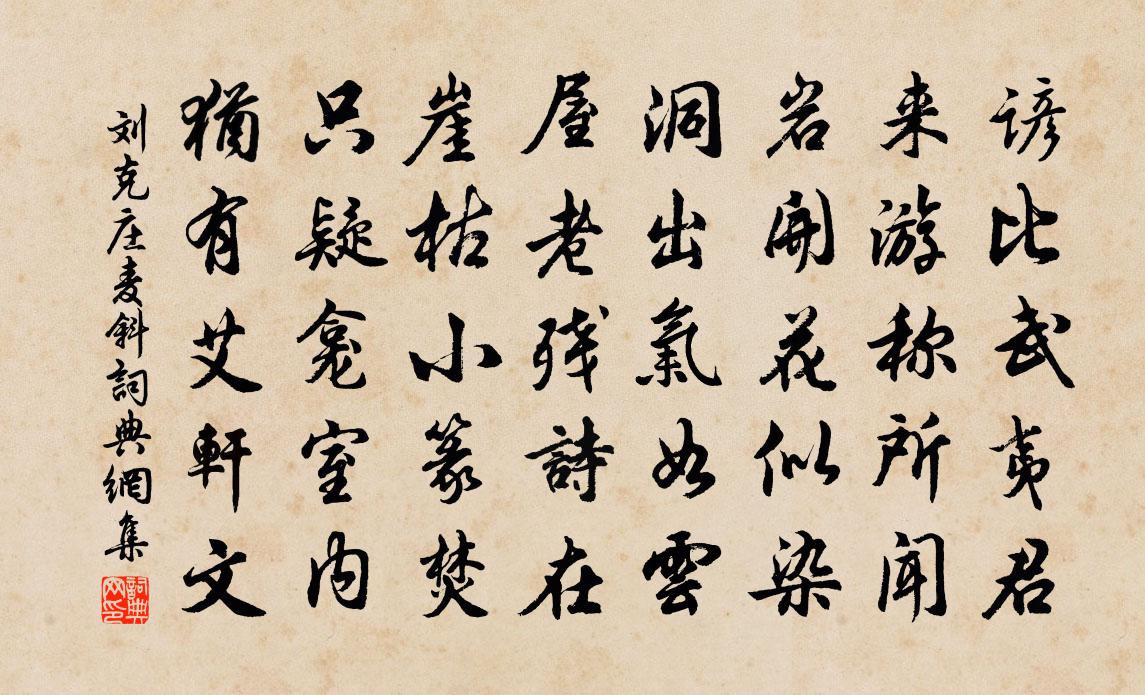 谚比武夷君
来游称所闻
岩開花似染
洞出氣如雲
屋老残詩在
崖枯小篆焚
只疑龛室内
猶有艾軒文
刘克庄麦斜詞典網集
詞典网印